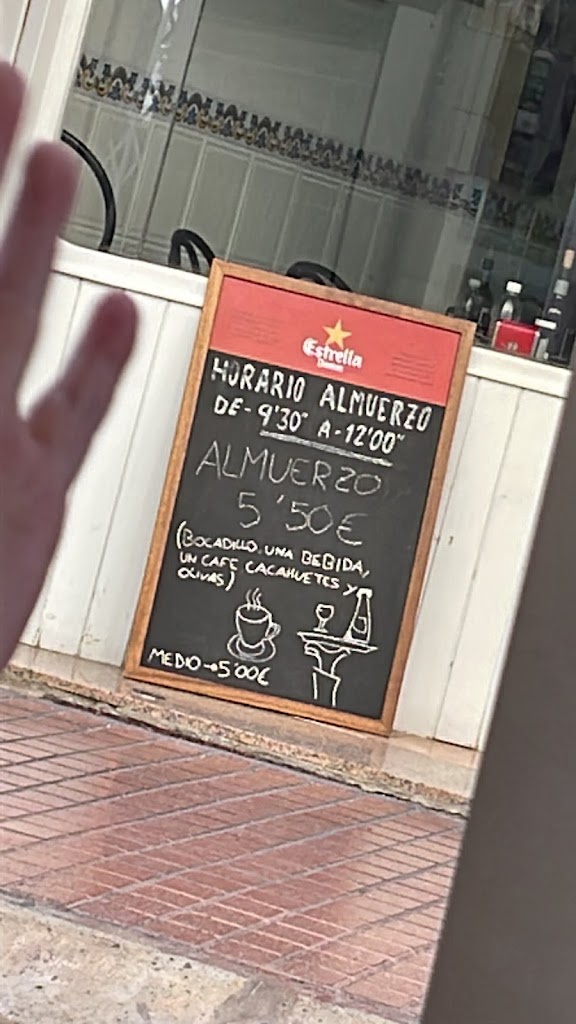 Estrella
Damm
HORARIO ALMUERZO
DE-9'30" A-12'00"
ALMUERZO
5'50€
(BOCADILLO, UNA BEBIDA,
UN CAFE CACAHUETES Y
OLIVAS)
MEDIO→5'00€